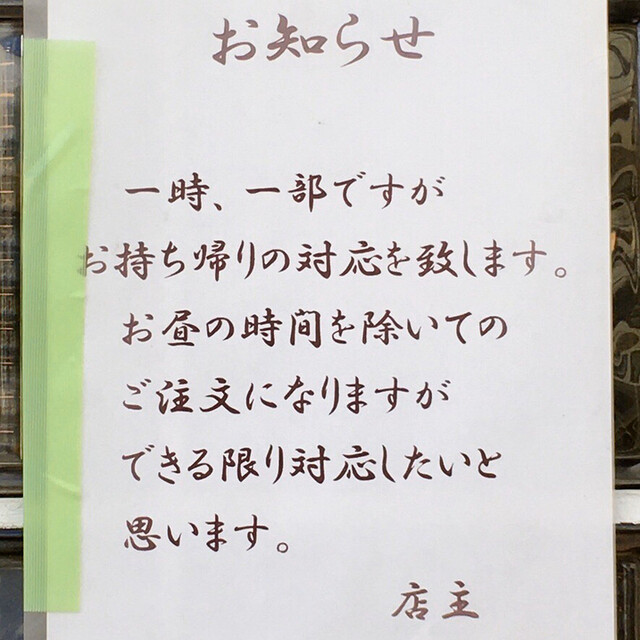 お知らせ
一時、一部ですが
お持ち帰りの対応を致します。
お昼の時間を除いての
ご注文になりますが
できる限り対応したいと
思います。
店主